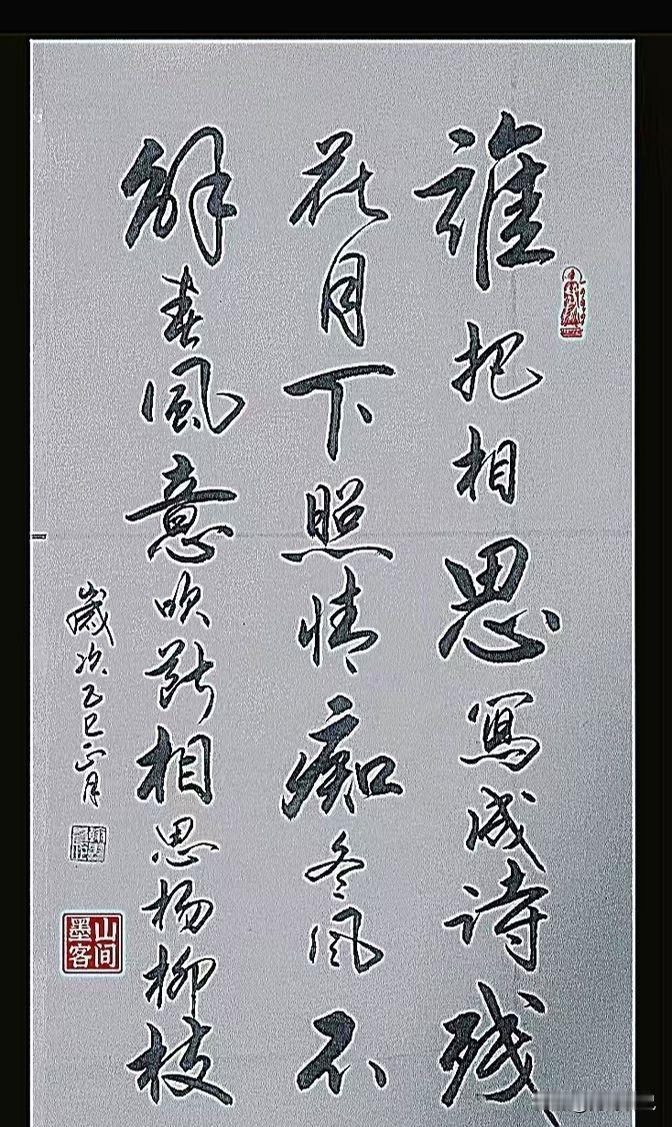 誰把相思寫成诗残
花月下照情痴冬风不
解春風意吹断相思杨柳枝
歲次乙巳正月
山间墨客